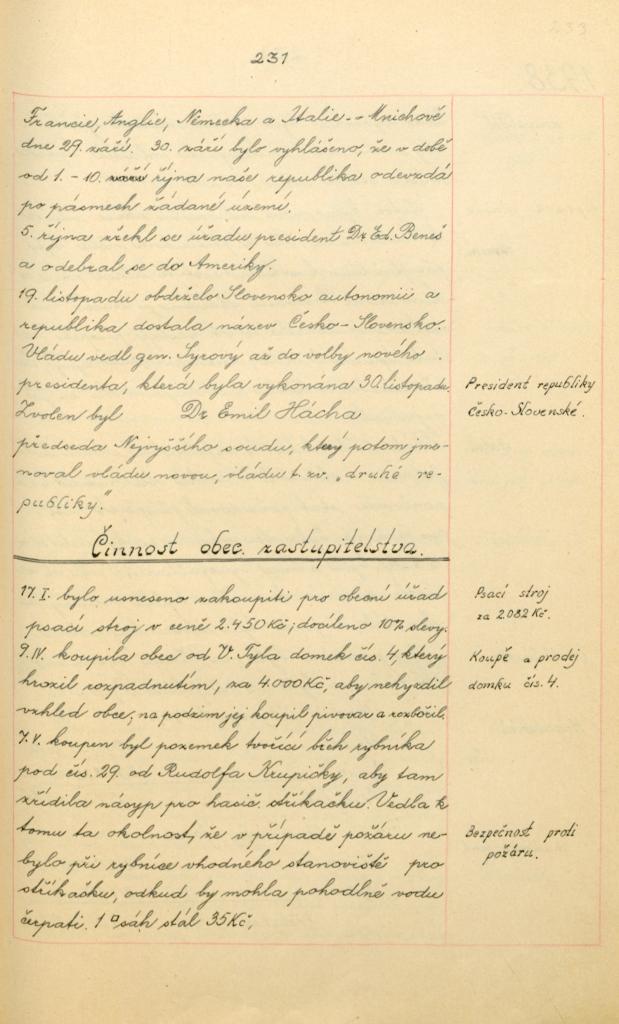 231
Francie, Anglie, Německa a Italie - v Mnichově
dne 29. září. 30. září bylo vyhlášeno, že v době
od 1. - 10. září října naše republika odevzdá
po pásmech žádané území.
5. října zřekl se úřadu president Dr Ed. Beneš
a odebral se do Ameriky.
19. listopadu obdrželo Slovensko autonomii a
republika dostala název Česko-Slovensko.
Vládu vedl gen. Syrový až do volby nového
presidenta, která byla vykonána 30. listopadu.
President republiky
Česko-Slovenské.
Zvolen byl Dr Emil Hácha
předseda Nejvyššího soudu, který potom jme-
noval vládu novou, vládu t. zv. „druhé re-
publiky."
Činnost obec. zastupitelstva.
17. I. bylo usneseno zakoupiti pro obecní úřad
psací stroj v ceně 2.450 Kč; docíleno 10% slevy.
Psací stroj
za 2.082 Kč.
9. IV. koupila obec od V. Týla domek čís. 4, který
hrozil rozpadnutím, za 4.000 Kč, aby nehyzdil
vzhled obce; na podzim jej koupil pivovar a rozbořil.
Koupě a prodej
domku čís. 4.
7. V. koupen byl pozemek tvořící břeh rybníka
pod čís. 29. od Rudolfa Krupičky, aby tam
zřídila násyp pro hasič. stříkačku. Vedla k
tomu ta okolnost, že v případě požáru ne-
bylo při rybníce vhodného stanoviště pro
stříkačku, odkud by mohla pohodlně vodu
čerpati. 1 □ sáh stál 35 Kč.
Bezpečnost proti
požáru.